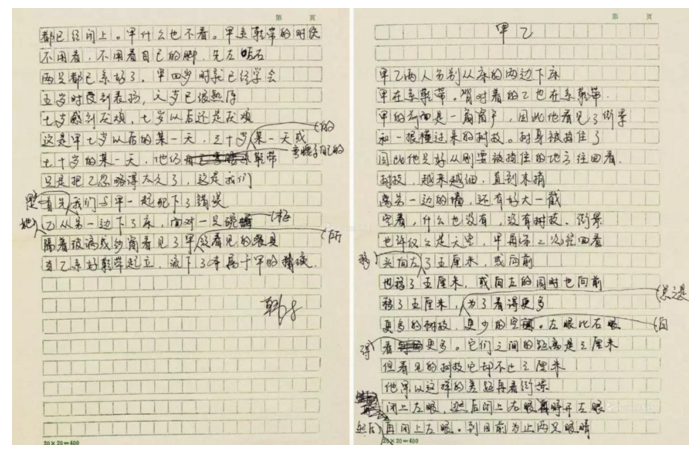 第 页
甲乙
甲乙两人分别从床的两边下床
甲在系鞋带。背对着的乙也在系鞋带
甲的前面是一扇窗户，因此他看见了街景
和一根横过来的树枝。树身被挡住了
因此他只好从刚要被挡住的地方往回看
树枝，越来越细，直到末梢
离另一边的墙，还有好大一截
空着，什么也没有，没有树枝、街景
也许仅仅是天空。甲再第二次往回看
头向左移了五厘米，或向前
也移了五厘米，或向左的同时也向前
移了五厘米，总之是为了看得更多
更多的树枝，更少的空白。左眼比右眼
看得更多。它们之间的距离是三厘米
但看见的树枝却不止三厘米
他用以这样的差距再看街景
闭上左眼，然后闭上右眼睁开左眼
然后再闭上左眼。到目前为止两只眼睛
20×20=400
第 页
都已经闭上。甲什么也不看。甲系鞋带的时候
不用看，不用看自己的脚，先左后右
两只都已系好了。甲四岁时就已经学会
五岁时受到表扬，六岁已很熟练
七岁感到厌烦，七岁以后还是厌烦
这是甲七岁以后的某一天，三十岁的某一天或
六十岁的某一天，他仍能弯腰系自己的鞋带
只是把乙忽略得太久了。这是我们
首先是我们与甲一起犯下的错误
她从另一边下了床，面对一只碗柜
隔着玻璃或纱窗看见了甲所没有看见的餐具
当乙系好鞋带起立，流下了本属于甲的精液
韩东
20×20=400